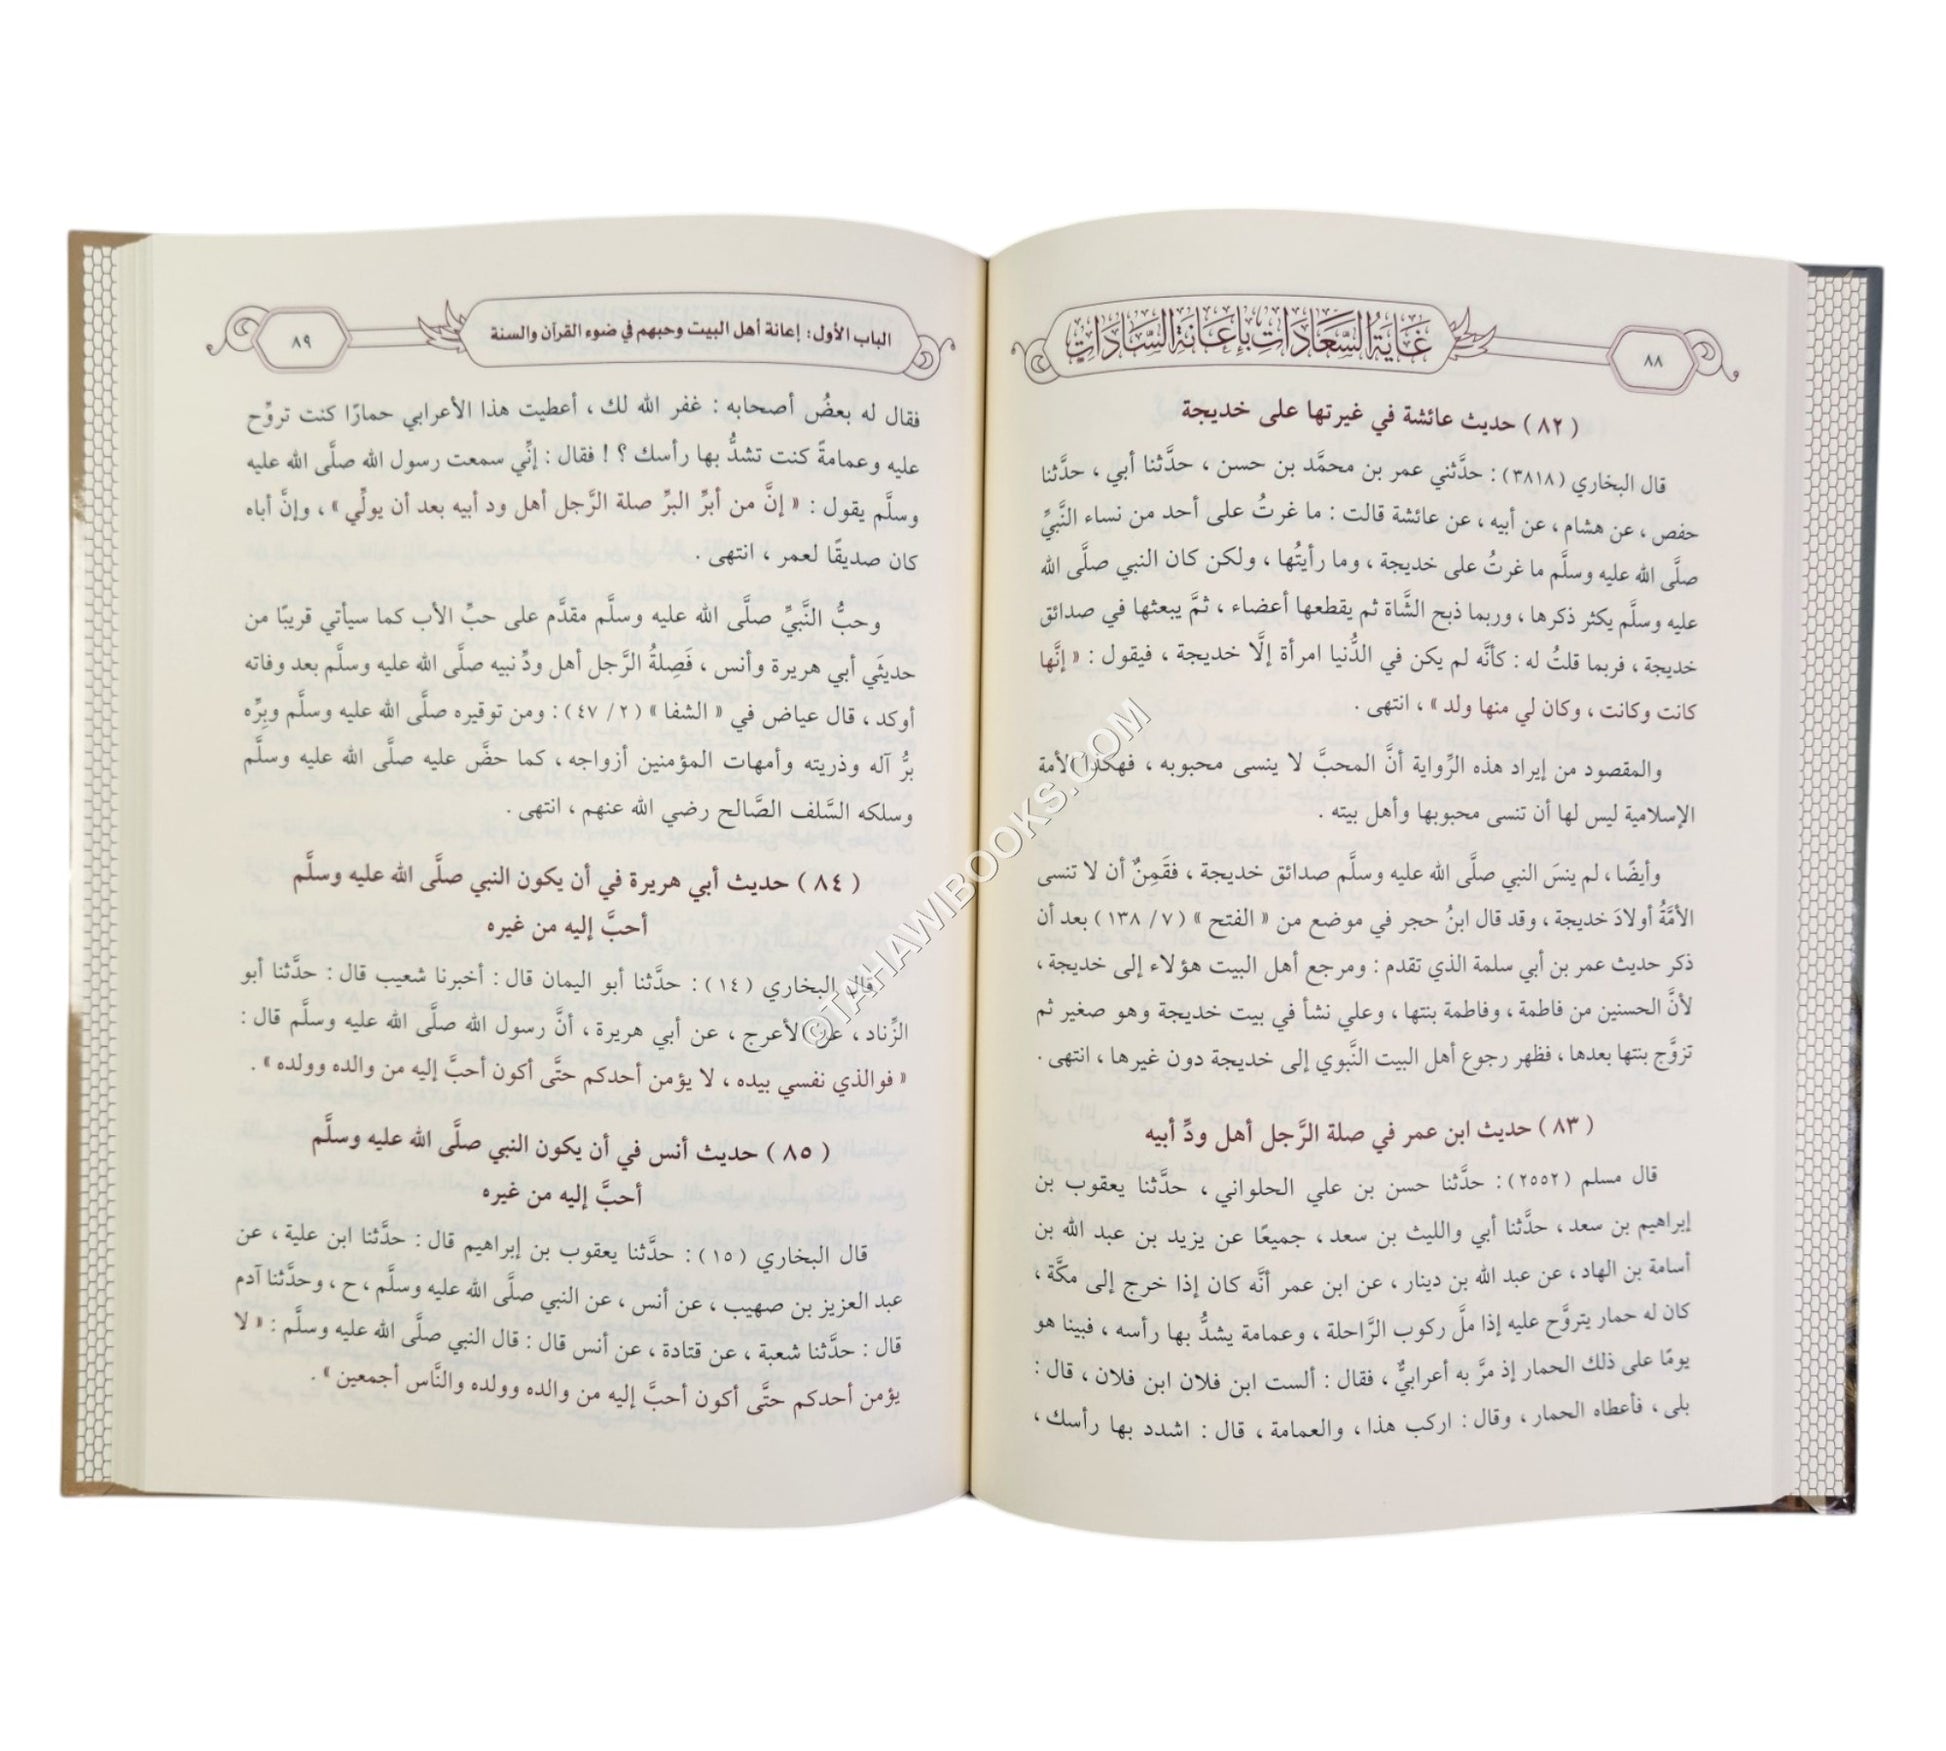 غاية السعادات بإعانة السادات
٨٨
( ٨٢ ) حديث عائشة في غيرتها على خديجة
قال البخاري ( ٣٨١٨ ) : حدَّثني عمر بن محمَّد بن حسن ، حدَّثنا أبي ، حدَّثنا
حفص ، عن هشام ، عن أبيه ، عن عائشة قالت : ما غرتُ على أحد من نساء النَّبيِّ
صلَّى الله عليه وسلَّم ما غرتُ على خديجة ، وما رأيتُها ، ولكن كان النبي صلَّى الله
عليه وسلَّم يكثر ذكرها ، وربما ذبح الشَّاة ثم يقطعها أعضاء ، ثمَّ يبعثها في صدائق
خديجة ، فربما قلتُ له : كأنَّه لم يكن في الدُّنيا امرأة إلَّا خديجة ، فيقول : « إنَّها
كانت وكانت ، وكان لي منها ولد » ، انتهى .
والمقصود من إيراد هذه الرِّواية أنَّ المحبَّ لا ينسى محبوبه ، فهكذا الأمة
الإسلامية ليس لها أن تنسى محبوبها وأهل بيته .
وأيضًا ، لم ينسَ النبي صلَّى الله عليه وسلَّم صدائق خديجة ، فقَمِنٌ أن لا تنسى
الأمَّةُ أولادَ خديجة ، وقد قال ابنُ حجر في موضع من « الفتح » ( ٧/ ١٣٨ ) بعد أن
ذكر حديث عمر بن أبي سلمة الذي تقدم : ومرجع أهل البيت هؤلاء إلى خديجة ،
لأنَّ الحسنين من فاطمة ، وفاطمة بنتها ، وعلي نشأ في بيت خديجة وهو صغير ثم
تزوَّج بنتها بعدها ، فظهر رجوع أهل البيت النَّبوي إلى خديجة دون غيرها ، انتهى .
( ٨٣ ) حديث ابن عمر في صلة الرَّجل أهل ودِّ أبيه
قال مسلم ( ٢٥٥٢ ) : حدَّثنا حسن بن علي الحلواني ، حدَّثنا يعقوب بن
إبراهيم بن سعد ، حدَّثنا أبي والليث بن سعد ، جميعًا عن يزيد بن عبد الله بن
أسامة بن الهاد ، عن عبد الله بن دينار ، عن ابن عمر أنَّه كان إذا خرج إلى مكَّة ،
كان له حمار يتروَّح عليه إذا ملَّ ركوب الرَّاحلة ، وعمامة يشدُّ بها رأسه ، فبينا هو
يومًا على ذلك الحمار إذ مرَّ به أعرابيٌّ ، فقال : ألست ابن فلان ابن فلان ، قال :
بلى ، فأعطاه الحمار ، وقال : اركب هذا ، والعمامة ، قال : اشدد بها رأسك ،
الباب الأول: إعانة أهل البيت وحبهم في ضوء القرآن والسنة
٨٩
فقال له بعضُ أصحابه : غفر الله لك ، أعطيت هذا الأعرابي حمارًا كنت تروَّح
عليه وعمامةً كنت تشدُّ بها رأسك ؟ ! فقال : إنِّي سمعت رسول الله صلَّى الله عليه
وسلَّم يقول : « إنَّ من أبرِّ البرِّ صلة الرَّجل أهل ود أبيه بعد أن يولِّي » ، وإنَّ أباه
كان صديقًا لعمر ، انتهى .
وحبُّ النَّبيِّ صلَّى الله عليه وسلَّم مقدَّم على حبِّ الأب كما سيأتي قريبًا من
حديثَي أبي هريرة وأنس ، فَصِلةُ الرَّجل أهل ودِّ نبيه صلَّى الله عليه وسلَّم بعد وفاته
أوكد ، قال عياض في « الشفا » ( ٢/ ٤٧ ) : ومن توقيره صلَّى الله عليه وسلَّم وبِرِّه
برُّ آله وذريته وأمهات المؤمنين أزواجه ، كما حضَّ عليه صلَّى الله عليه وسلَّم
وسلكه السَّلف الصَّالح رضي الله عنهم ، انتهى .
( ٨٤ ) حديث أبي هريرة في أن يكون النبي صلَّى الله عليه وسلَّم
أحبَّ إليه من غيره
قال البخاري ( ١٤ ) : حدَّثنا أبو اليمان قال : أخبرنا شعيب قال : حدَّثنا أبو
الزِّناد ، عن الأعرج ، عن أبي هريرة ، أنَّ رسول الله صلَّى الله عليه وسلَّم قال :
« فوالذي نفسي بيده ، لا يؤمن أحدكم حتَّى أكون أحبَّ إليه من والده وولده » .
( ٨٥ ) حديث أنس في أن يكون النبي صلَّى الله عليه وسلَّم
أحبَّ إليه من غيره
قال البخاري ( ١٥ ) : حدَّثنا يعقوب بن إبراهيم قال : حدَّثنا ابن علية ، عن
عبد العزيز بن صهيب ، عن أنس ، عن النبي صلَّى الله عليه وسلَّم ، ح ، وحدَّثنا آدم
قال : حدَّثنا شعبة ، عن قتادة ، عن أنس قال : قال النبي صلَّى الله عليه وسلَّم : « لا
يؤمن أحدكم حتَّى أكون أحبَّ إليه من والده وولده والنَّاس أجمعين » .
©TAHAWIBOOKS.COM